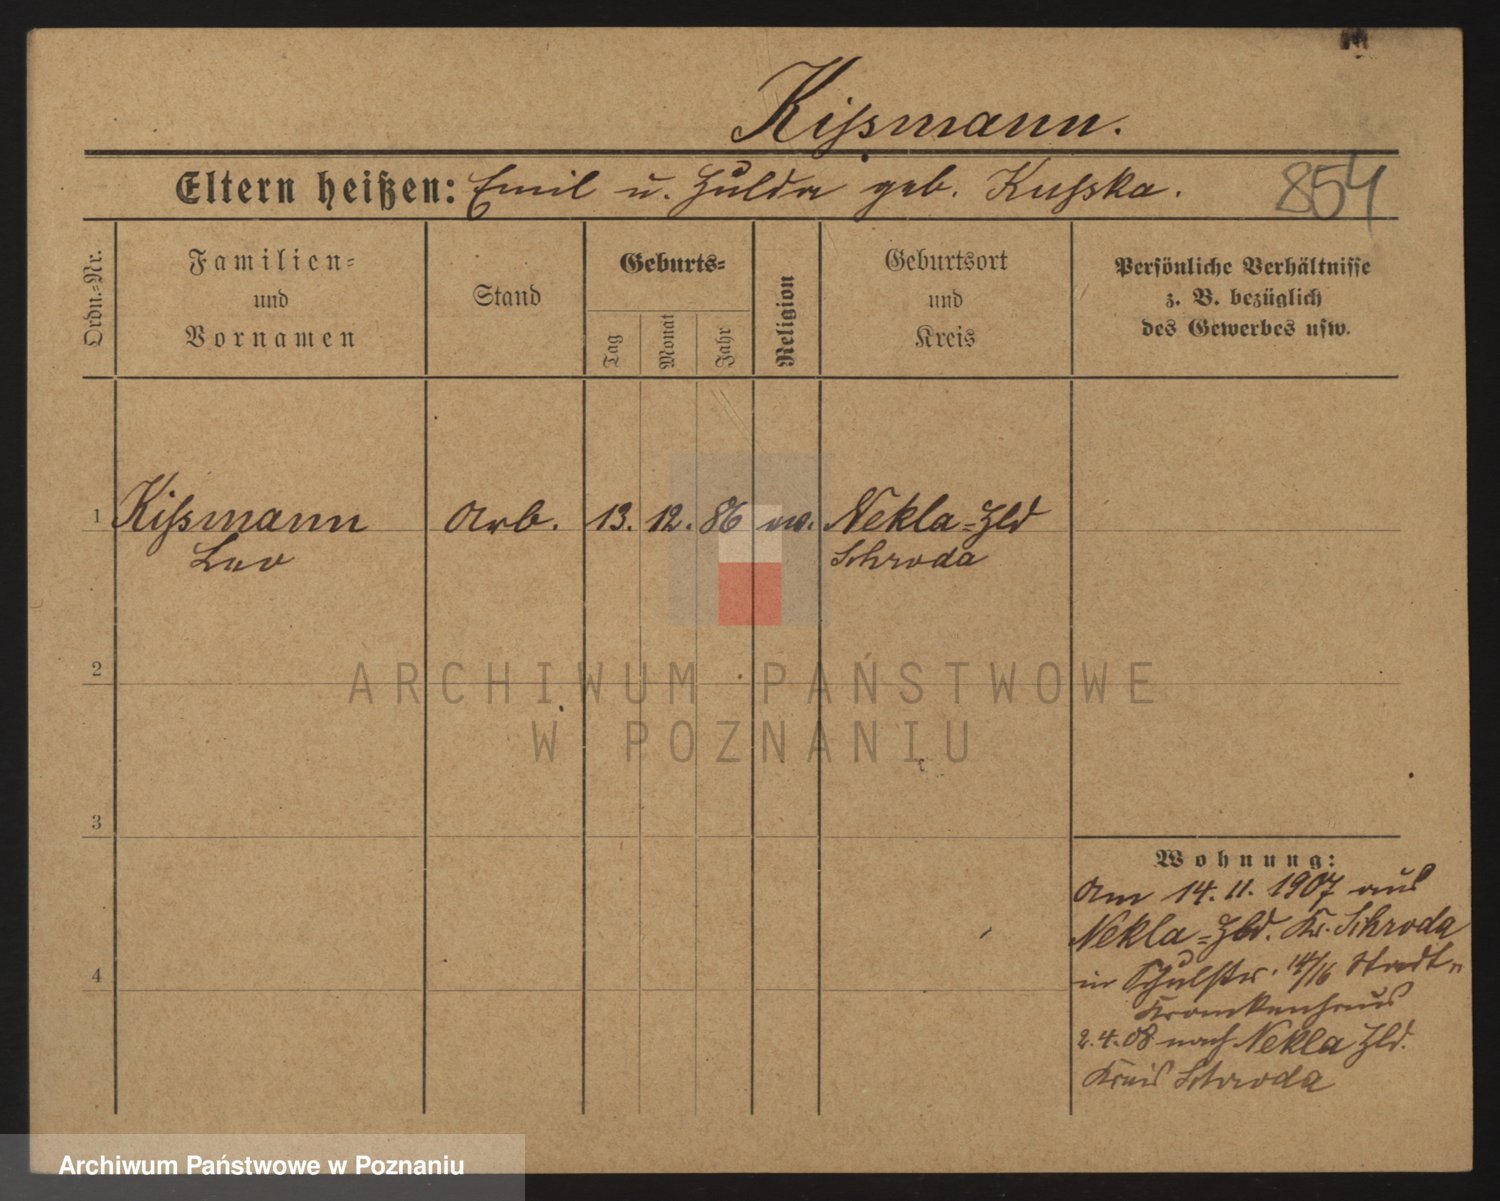 Kißmann.
Eltern heißen: Emil u. Hulda geb. Kußka.
854
Ordn.-Nr.
Familien-
und
Vornamen
Stand
Geburts-
Tag
Monat
Jahr
Religion
Geburtsort
und
Kreis
Persönliche Verhältnisse
z. B. bezüglich
des Gewerbes usw.
1 Kißmann Arb. 13. 12. 86 ev. Nekla-Hld
Leo Schroda
2
3
4
Wohnung:
Am 14. 11. 1907 aus
Nekla-Hld. Kr. Schroda
in Schulstr. 14/16 Stadt-
Krankenhaus
2. 4. 08 nach Nekla Hld.
Kreis Schroda
ARCHIWUM PAŃSTWOWE
W POZNANIU
Archiwum Państwowe w Poznaniu